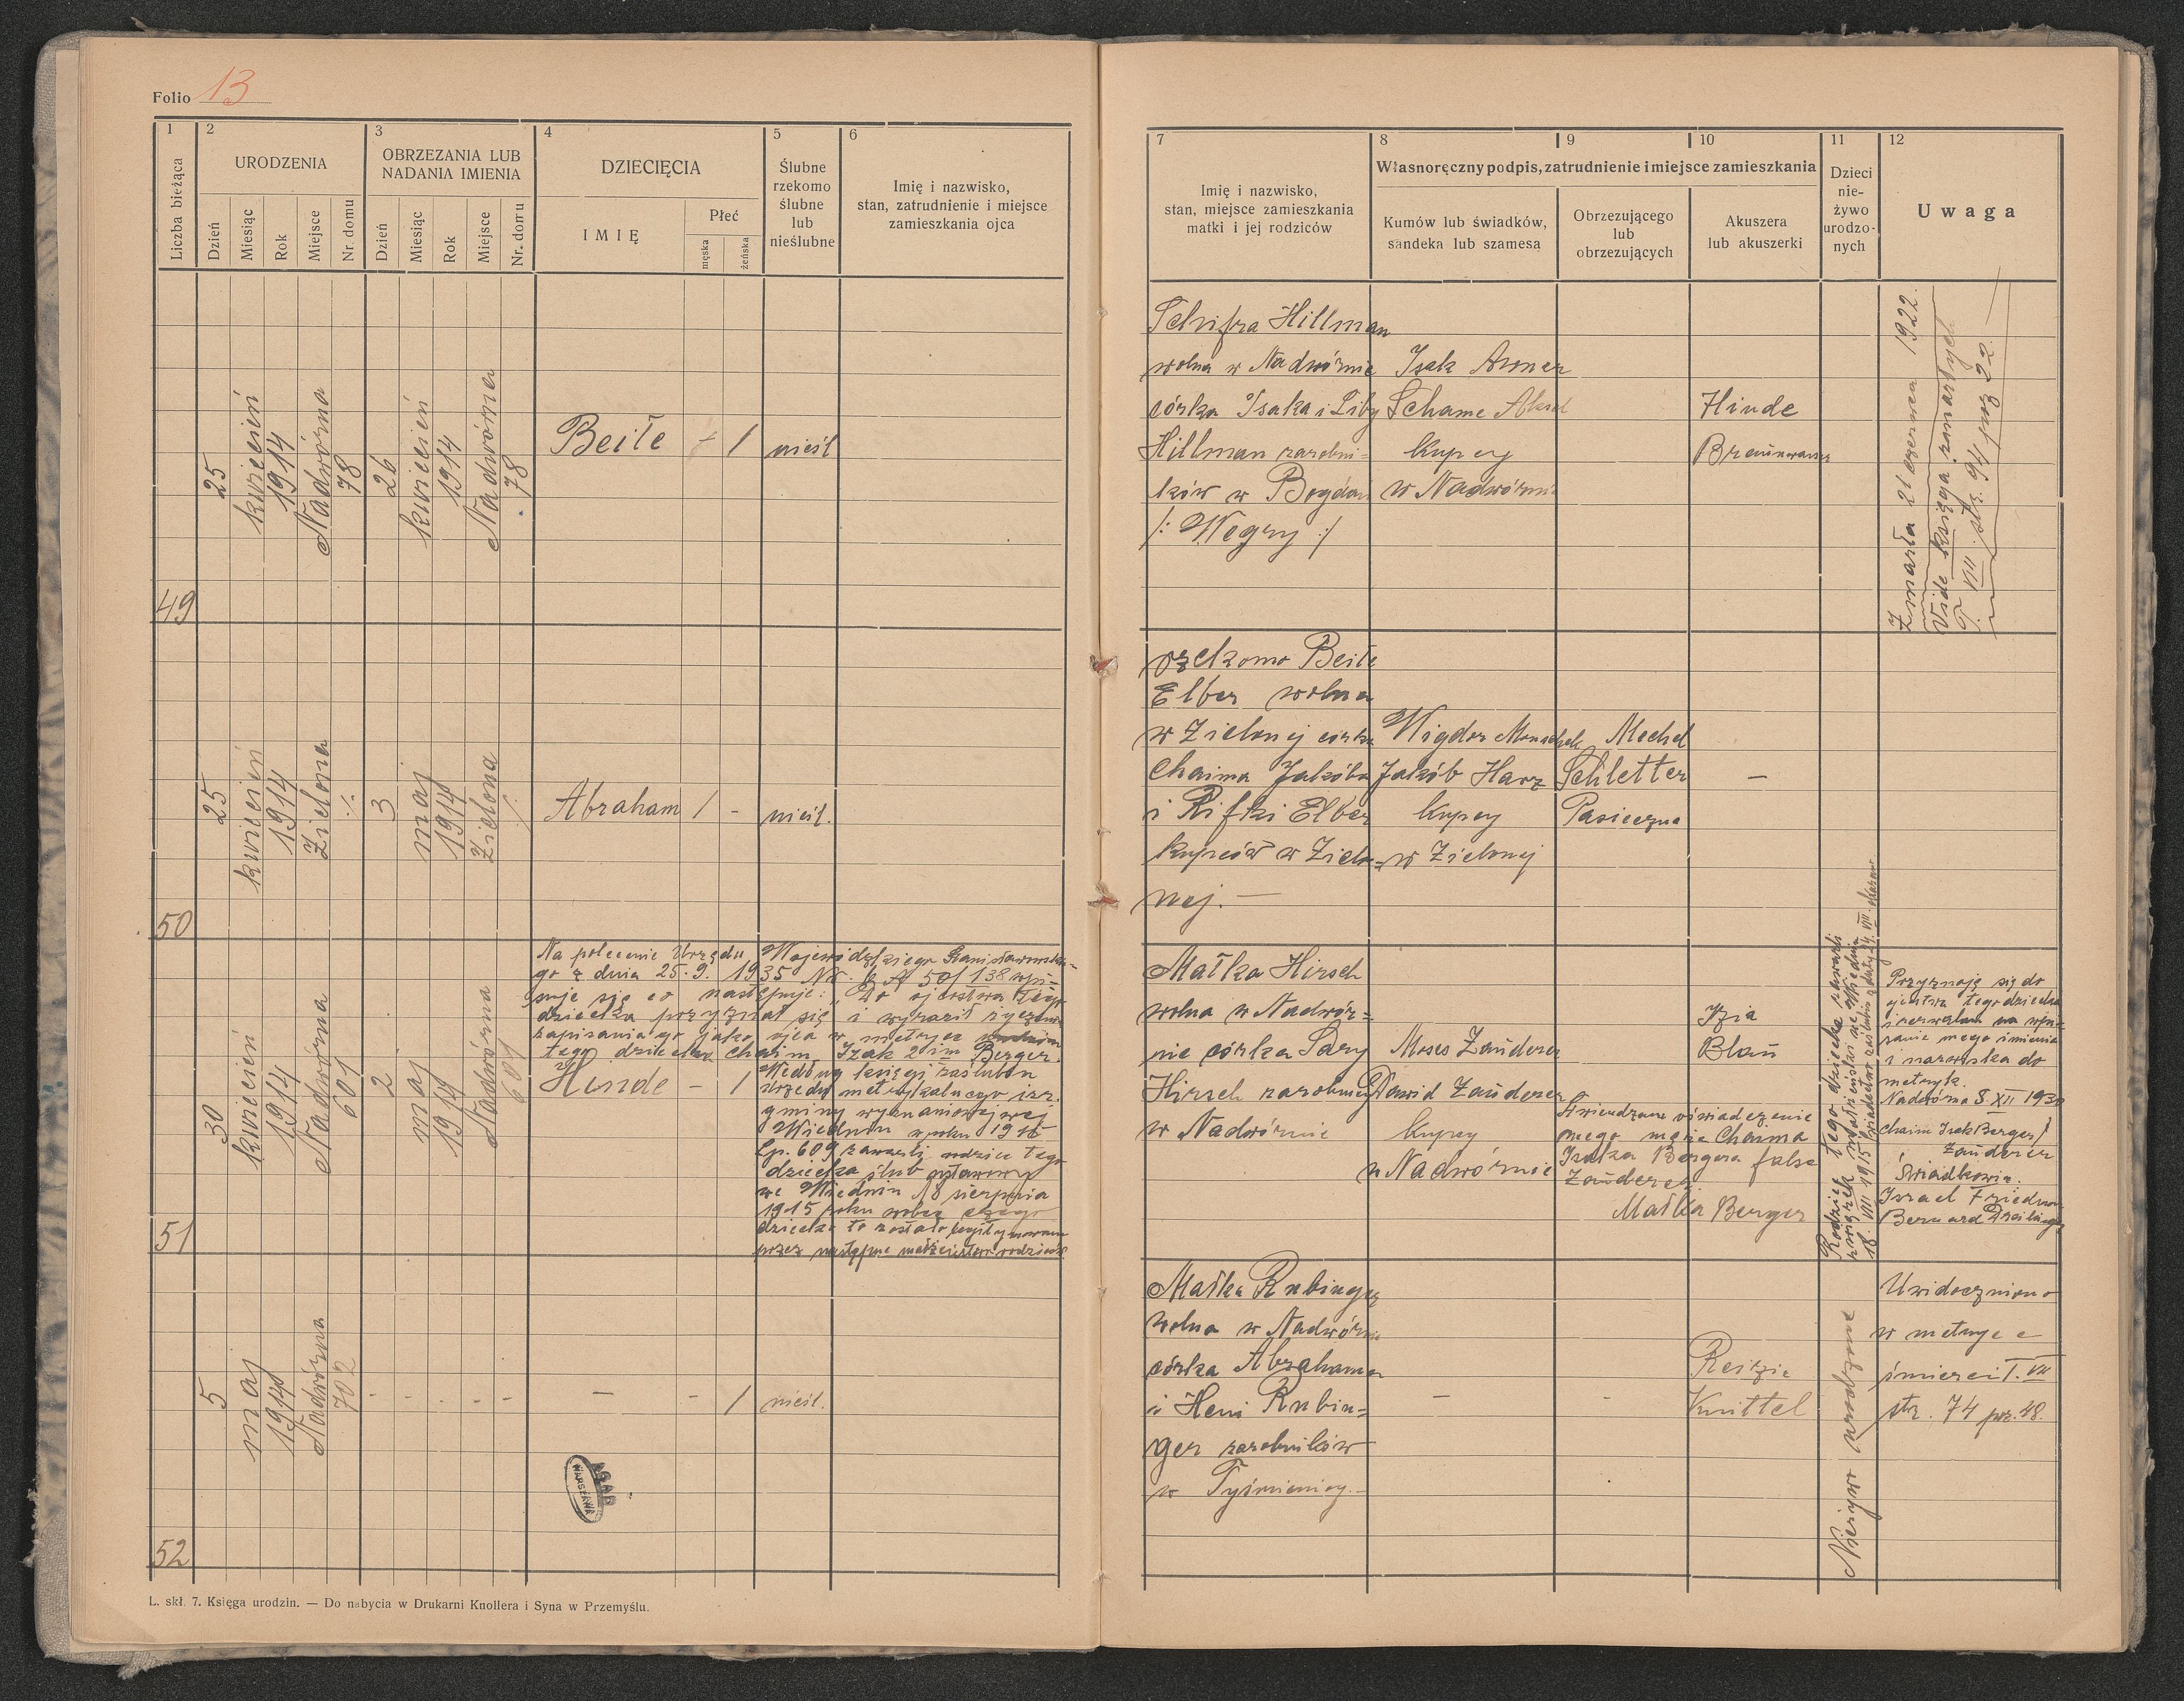 Folio 13
1
2
3
4
5
6
Liczba bieżąca
URODZENIA
OBRZEZANIA LUB
NADANIA IMIENIA
DZIECIĘCIA
Ślubne
rzekomo
ślubne
lub
nieślubne
Imię i nazwisko,
stan, zatrudnienie i miejsce
zamieszkania ojca
Dzień
Miesiąc
Rok
Miejsce
Nr. domu
Dzień
Miesiąc
Rok
Miejsce
Nr. domu
IMIĘ
Płeć
męska
żeńska
7
8
9
10
11
12
Imię i nazwisko,
stan, miejsce zamieszkania
matki i jej rodziców
Własnoręczny podpis, zatrudnienie i miejsce zamieszkania
Kumów lub świadków,
sandeka lub szamesa
Obrzezującego
lub
obrzezujących
Akuszera
lub akuszerki
Dzieci
nie-
żywo
urodzo-
nych
Uwaga
49
25
kwiecień
1914
Nadwórna
78
26
kwiecień
1914
Nadwórna
78
Beile
1
nieśl
Schifra Hillman
wolna w Nadwórnie
córka Isaka i Liby
Hillman zarobni=
ków w Bogdan
/: Węgry :/
Isak
Schame
kupcy
w Nadwórnie
Hinde
Zmarła 21 czerwca 1922.
Vide księga zmarłych
T. VII str. 94 poz 22.
50
25
kwiecień
1914
Zielona
·/.
3
maj
1914
Zielona
·/.
Abraham
1
-
nieśl.
rzekomo Beile
Elber wolna
w Zielonej córka
Chaima Jakóba
i Rifki Elber
kupców w Zielo=
nej. —
Wigdor
Jakób Harz
kupcy
w Zielonej
Mechel
Schletter
Pasieczna
—
51
30
kwiecień
1914
Nadwórna
601
2
maj
1914
Nadwórna
601
Na polecenie Urzędu Wojewódzkiego Stanisławowskie-
go z dnia 25.9. 1935 Nr. 50/138 wpi-
suje się co następuje: "Do ojcostwa tego
dziecka przyznał się i wyraził życzenie
zapisania go jako ojca w metryce
tego dziecka Chaim Izak 2 im Berger.
Hinde
-
1
Według księgi zaślubin
urzędu metrykalnego izr.
gminy wyznaniowej we
Wiedniu z roku 1916
Lp. 609 zawarli rodzice tego
dziecka ślub rytualny
we Wiedniu 18 sierpnia
1915 roku wobec czego
dziecko to zostało legitymowane
przez następne małżeństwo rodziców
Małka Hirsch
wolna w Nadwór=
nie córka Sary
Hirsch zarobnicy
w Nadwórnie
Moses Zauderer
Dawid Zauderer
kupcy
w Nadwórnie
Izia
Blau
Stwierdzam oświadczenie
mego męża Chaima
Isaka Bergera false
Zauderer
Małka Berger
Rodzice tego dziecka zawarli
związek małżeński we Wiedniu
Przyznaję się do
ojcostwa tego dziecka
i zezwalam na wpi-
sanie mego imienia
i nazwiska do
metryk.
Nadwórna 8 XII 193
Chaim Isak Berger /
Zauderer
Świadkowie.
Israel
Bernard
52
5
maj
1914
Nadwórna
702
-
-
-
-
—
-
1
nieśl.
Małka Rubinger
wolna w Nadwórnie
córka Abrahama
i Heni Rubin=
ger zarobników
w Tyśmienicy. -
—
-
Reizie
Knittel
Nieżywo urodzone
Uwidoczniono
w metryce
śmierci T. VII
str. 74 poz. 48.
AGAD
WARSZAWA
L. skł. 7. Księga urodzin. — Do nabycia w Drukarni Knollera i Syna w Przemyślu.